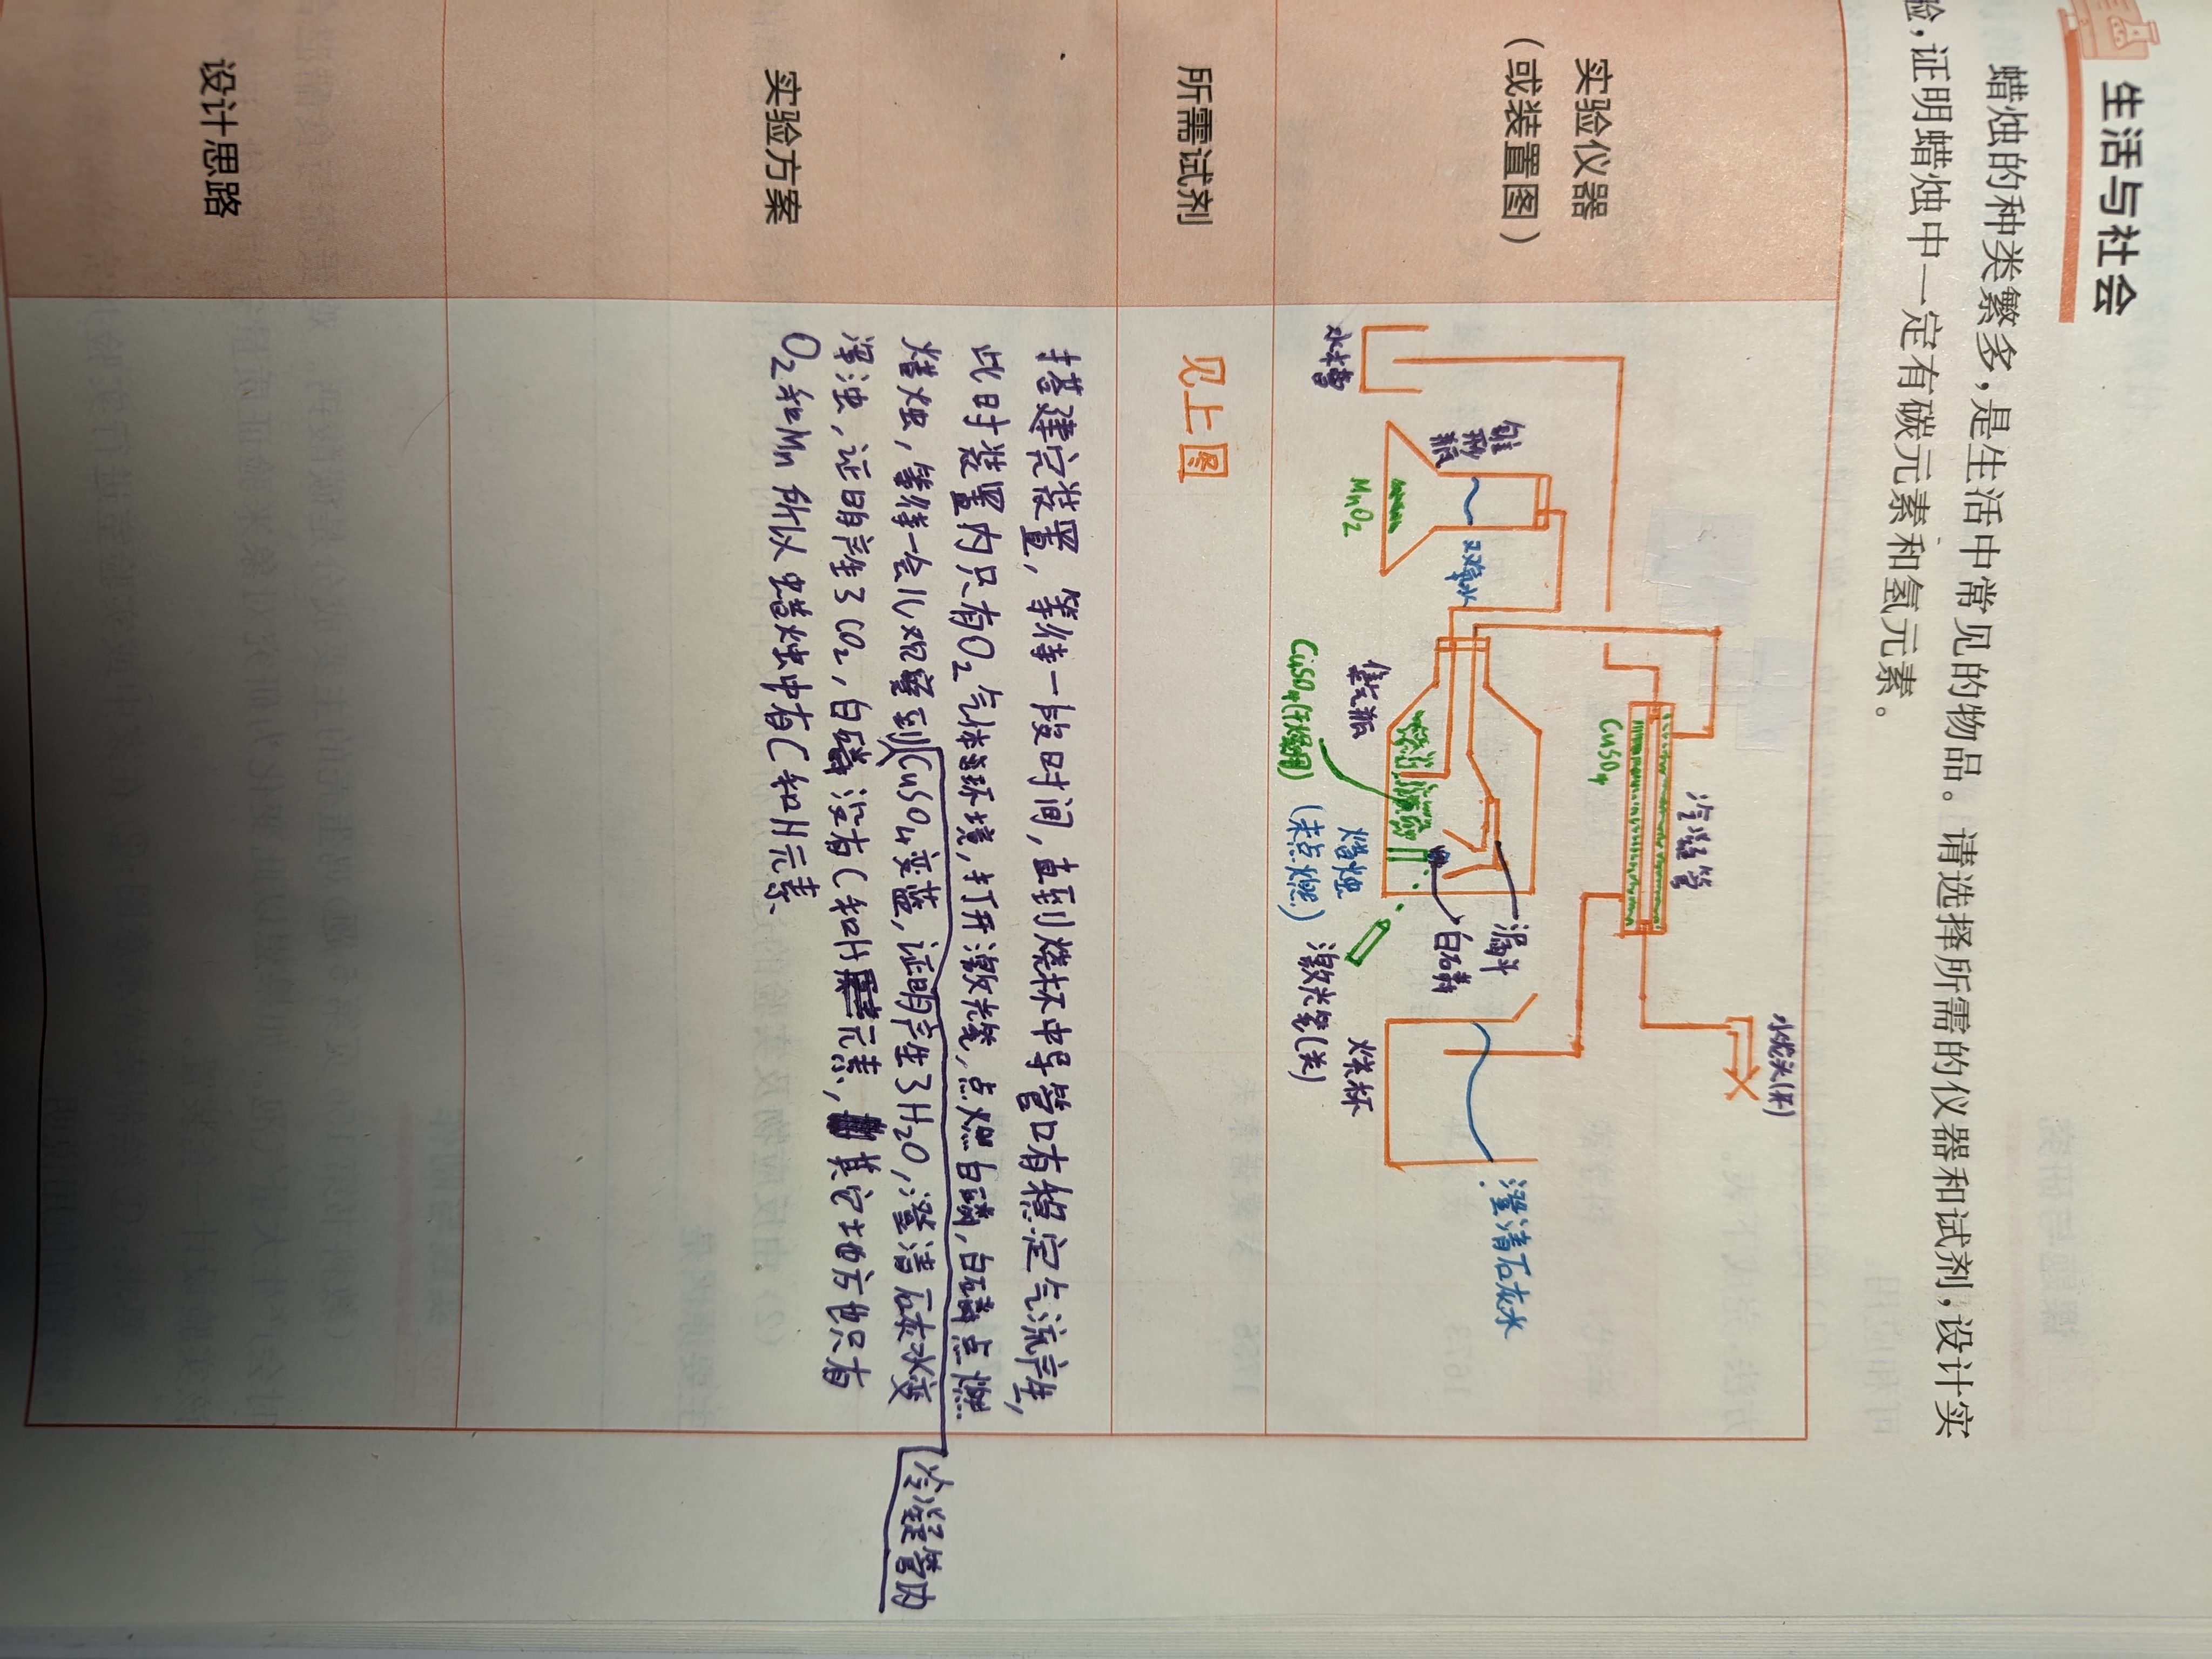 生活与社会
蜡烛的种类繁多，是生活中常见的物品。请选择所需的仪器和试剂，设计实
验，证明蜡烛中一定有碳元素和氢元素。
实验仪器
（或装置图）
水龙头(开)
冷凝管
CuSO4
水槽
锥形瓶
MnO2
双氧水
集气瓶
CuSO4(干燥用)
蜡烛
(未点燃)
漏斗
白磷
激光笔(关)
烧杯
澄清石灰水
所需试剂
见上图
实验方案
搭建完装置，等待一段时间，直到烧杯中导管口有稳定气流产生，
此时装置内只有O2气体环境，打开激光笔，点燃白磷，白磷点燃
蜡烛，等待一会儿观察到CuSO4变蓝，证明产生了H2O，澄清石灰水变
冷凝管内
浑浊，证明产生了CO2，白磷没有C和H元素，其它地方也只有
O2和Mn所以蜡烛中有C和H元素
设计思路